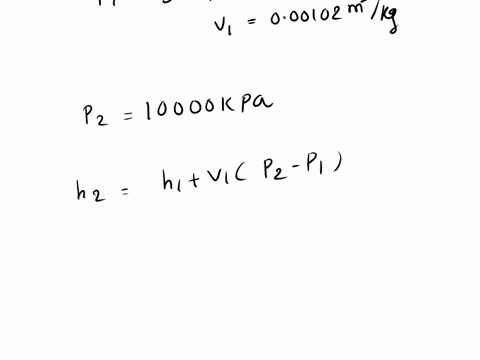 v₁ = 0.00102 m³/kg
P₂ = 10000 KPa
h₂ = h₁ + v₁ ( P₂ - P₁ )